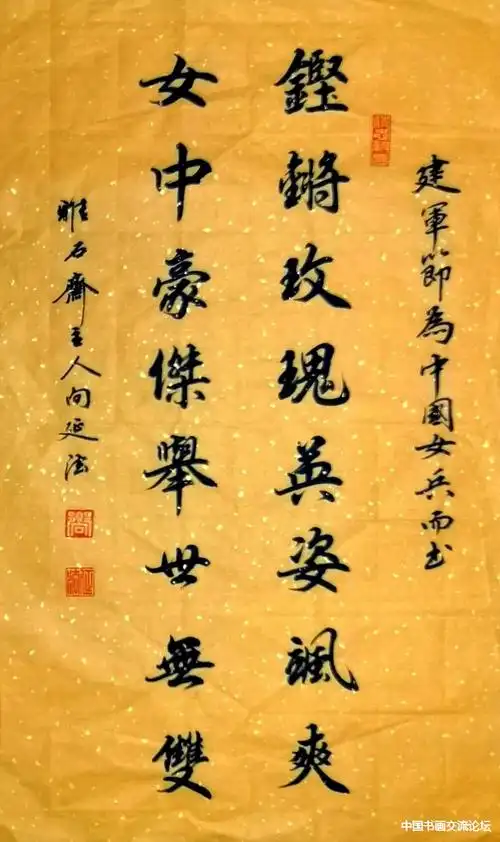 建軍節為中國女兵而书
鏗鏘玫瑰英姿颯爽
女中豪傑舉世無雙
雕石齋主人向延法
中国书画交流论坛